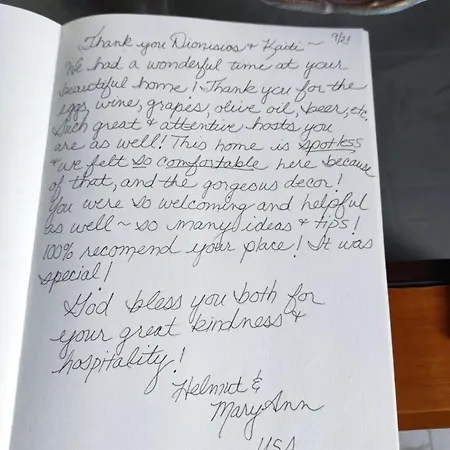 Thank you Dionisios & Kaiti ~
9/23
We had a wonderful time at your
beautiful home! Thank you for the
eggs, wine, grapes, olive oil, beer, etc.
Such great & attentive hosts you
are as well! This home is spotless
& we felt so comfortable here because
of that, and the gorgeous decor!
You were so welcoming and helpful
as well ~ so many ideas & tips!
100% recomend your place! It was
special!
God bless you both for
your great kindness &
hospitality!
Helmut &
MaryAnn
USA